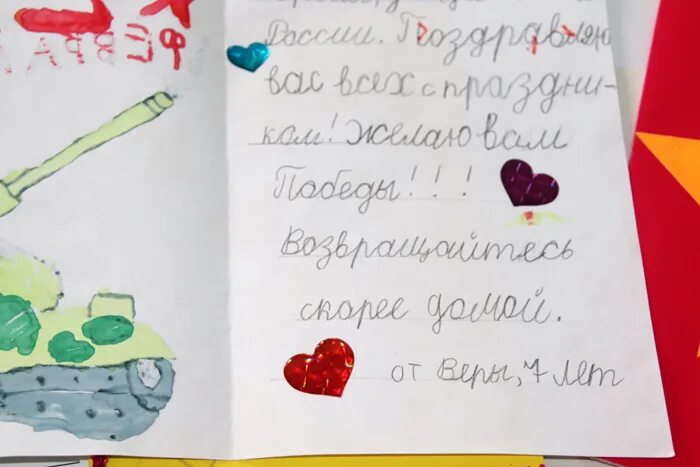 ФЕВРАЛ
России. Поздравляю
вас всех с праздни-
ком! Желаю вам
Победы!!!
Возвращайтесь
скорее домой.
от Веры, 7 лет